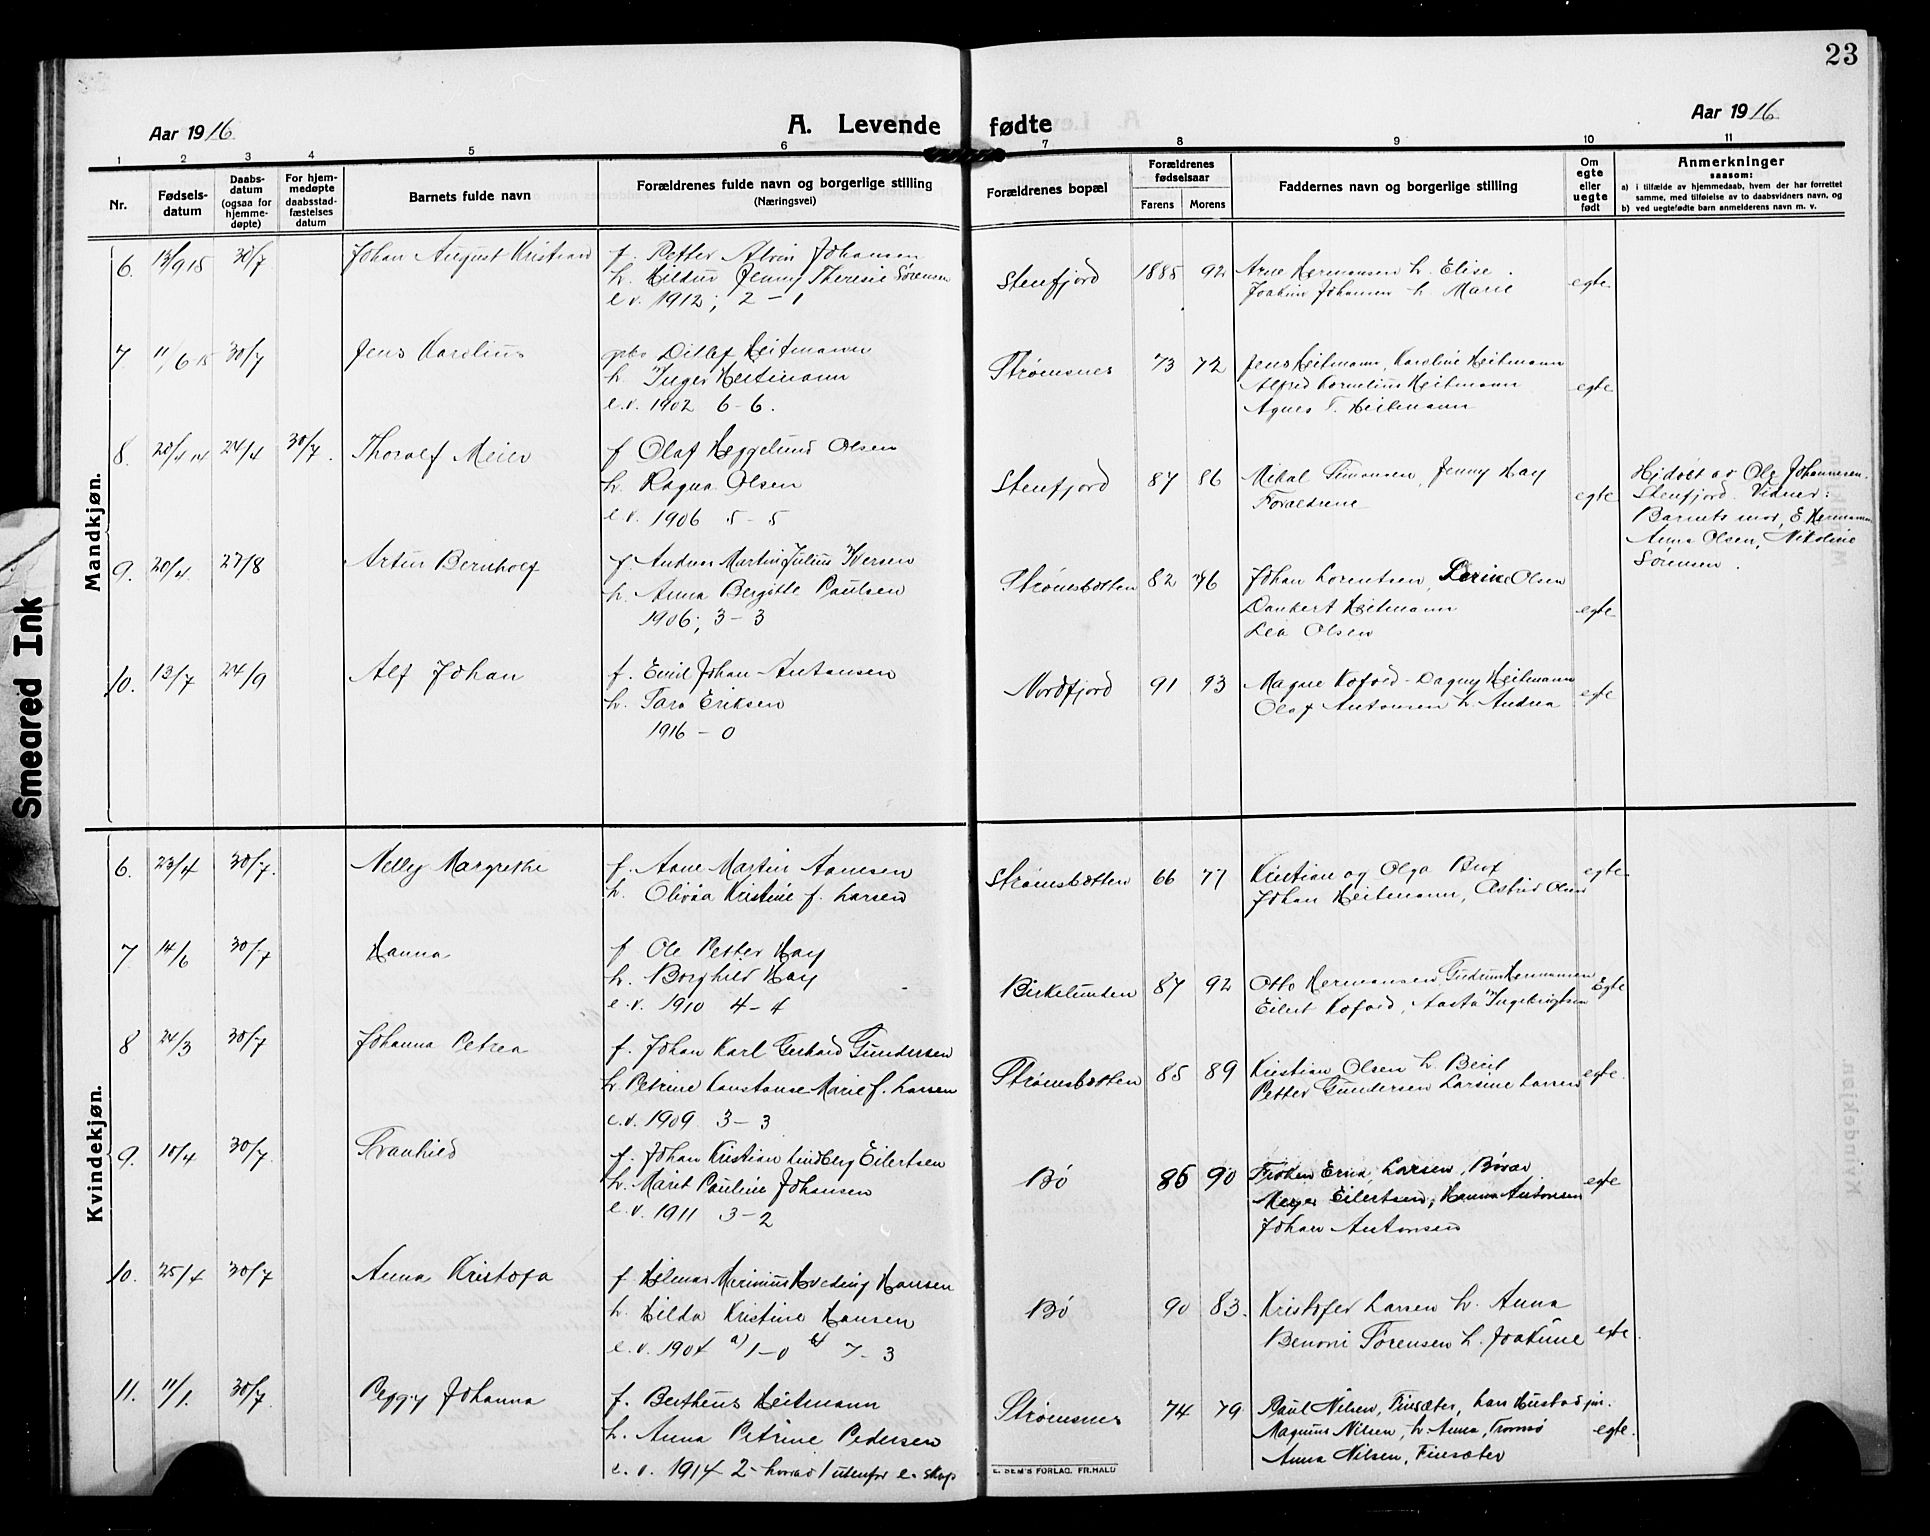 23
Aar 1916
A. Levende fødte
Aar 1916
1 2 3 4 5 6 7 8 9 10 11
Nr.
Fødsels-
datum
Daabs-
datum
(ogsaa for
hjemme-
døpte)
For hjem-
medøpte
daabsstad-
fæstelses
datum
Barnets fulde navn
Forældrenes fulde navn og borgerlige stilling
(Næringsvei)
Forældrenes bopæl
Forældrenes
fødselsaar
Farens Morens
Faddernes navn og borgerlige stilling
Om
egte
eller
uegte
født
Anmerkninger
saasom:
a) i tilfælde av hjemmedaab, hvem der har forrettet
samme, med tilføielse av to daabsvidners navn, og
b) ved uegtefødte barn anmelderens navn m. v.
Mandkjøn.
6. 13/9 15 30/7 Johan August Kristian
f. Petter Alvin Johansen
h. Hildur Jenny Theresie Sørensen
e.v. 1912; 2-1
Stenfjord 1885 92
Arne Hermansen h. Elise.
Joakim Johansen h. Marie
egte
7 11/6 15 30/7 Jens Karolius
gbr. Ditlef Heitmann
h. Inger Heitmann
e.v. 1902 6-6.
Strømsnes 73 72
Jens Heitmann, Karoline Heitmann
Alfred Kornelius Heitmann
Agnes T. Heitmann
egte
8. 20/4 14 24/4 30/7. Thoralf Meier
f Olaf Heggelund Olsen
h. Ragna Olsen
e.v. 1906 5-5
Stenfjord 87 86
Mikal Simonsen, Jenny Hay
Forældrene
egte
Hjdøbt av Ole Johannesen.
Stenfjord. Vidner:
Barnets mor, E. Hermansen
Anna Olsen, Nikoline
Sørensen.
9. 20/4 27/8 Artur Bernholf
f. Anders Martin Julius Iversen
h. Anna Bergitte Paulsen
1906; 3-3
Strømsbotten 82 76
Johan Lorentsen, Lorine Olsen
Dankert Heitmann
Lea Olsen
egte
10. 13/7 24/9 Alf Johan
f. Emil Johan Antonsen
h. Tara Eriksen
1916 - 0
Nordfjord 91 93
Magne Kofoed - Dagny Heitmann
Olaf Antonsen h. Andrea
egte
Kvindekjøn.
6. 23/4 30/7. Nelly Margrethe
f. Aane Martin Aanesen
h. Olivia Kristine f. Larsen
Strømsbotten 66 77
Kristian og Olga Brox
Johan Heitmann, Astrid Olsen
egte
7 14/6 30/7 Hanna
f Ole Petter Hay
h. Borghild Hay
e.v. 1910 4-4
Birkelunden 87 92
Otto Hermansen Gudrun Hermansen
Eilert Kofoed, Aasta Ingebrigtsen
Egte
8 24/3 30/7 Johanna Petrea
f. Johan Karl Gerhard Gundersen
h. Petrine Konstanse Marie f. Larsen
e.v. 1909 3-3
Strømsbotten 85 89
Kristian Olsen h. Berit
Petter Gundersen Larsine Larsen
egte.
9. 10/4 30/7. Svanhild
f. Johan Kristian Lindberg Eilertsen
h. Marit Pauline Johansen
e.v. 1911 3-2
Bø 86 90
Frøken Erna Larsen, Bøvær
Meyer Eilertsen, Hanna Antonsen
Johan Antonsen
egte
10. 25/4 30/7 Anna Kristofa
f. Hilmar Marinius Hveding Hansen
h. Hilda Kristine Hansen
e.v. 1904 a) 1-0 b) 7-3
Bø 90 83.
Kristofer Larsen h. Anna
Benoni Sørensen h. Joakime
egte.
11. 11/1. 30/7. Peggy Johanna
f. Bertheus Heitmann
h. Anna Petrine Pedersen
e.v. 1914 2- hvorav 1 utenfor e. skap
Strømsnes 74 79.
Paul Nilsen, Finsæter, Lars Hustad jr.
Magnus Nilsen, h. Anna, Tromsø
Anna Nilsen, Finsæter
egte.
E. SEM'S FORLAG. FR.HALD
Smeared Ink